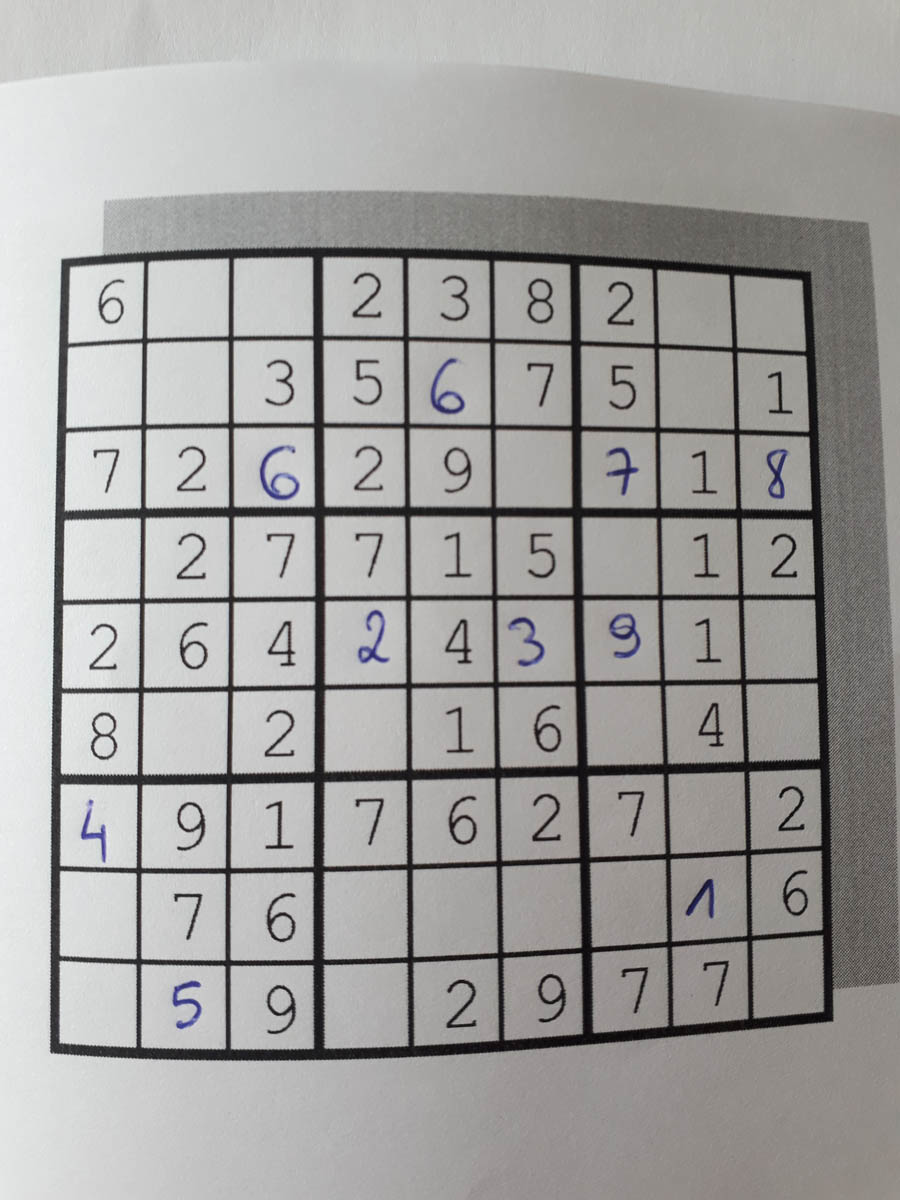 6 2 3 8 2
3 5 6 7 5 1
7 2 6 2 9 7 1 8
2 7 7 1 5 1 2
2 6 4 2 4 3 9 1
8 2 1 6 4
4 9 1 7 6 2 7 2
7 6 1 6
5 9 2 9 7 7